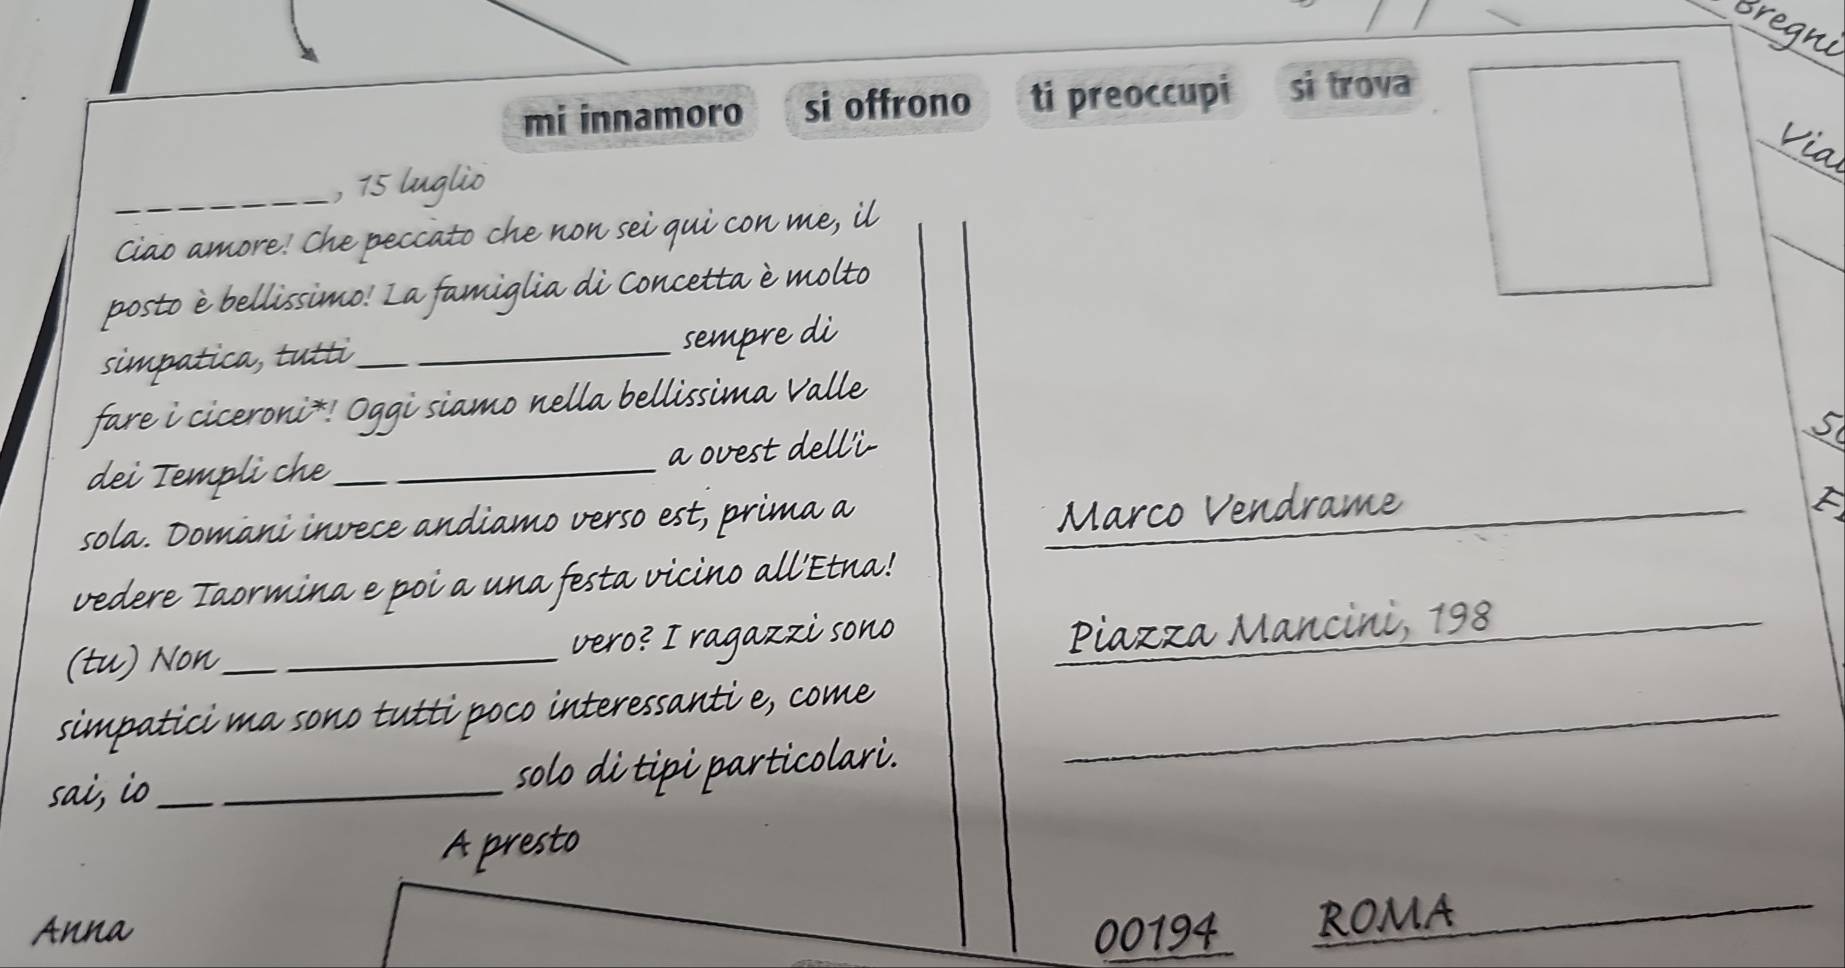 Bregni
mi innamoro si offrono ti preoccupi si trova
Vial
_______, 15 luglio
Ciao amore! Che peccato che non sei qui con me, il
posto è bellissimo! La famiglia di Concetta è molto
simpatica, tutti __ ________ sempre di
fare i ciceroni*! Oggi siamo nella bellissima Valle
dei Templi che __ ________ a ovest dell'i-
sola. Domani invece andiamo verso est, prima a
vedere Taormina e poi a una festa vicino all'Etna!
(tu) Non __ ________ vero? I ragazzi sono
simpatici ma sono tutti poco interessanti e, come
sai, io __ ________ solo di tipi particolari.
A presto
Anna
Marco Vendrame
Piazza Mancini, 198
00194 ROMA